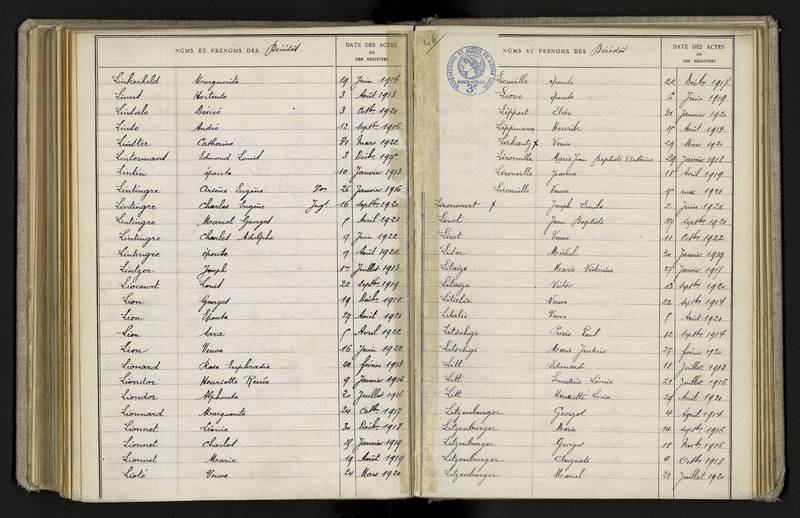 NOMS ET PRÉNOMS DES Décédés DATE DES ACTES OU DES REGISTRES
Linkerheld Marguerite 19 Juin 1914
Linnd Hortense 3 Août 1913
Linsale Désiré 3 Octbre 1920
Linse André 12 Septbre 1916
Linster Catherine Mars 1922
Lintermand Edmond Louis 3 Décbre
Lintin épouse 10 Janvier 1913
Lintingre Arsène Eugène 26 Janvier 1916
Lintingre Charles Eugène Jugt 16 Septbre 1920
Lintingre Marcel Georges Avril 1921
Lintingre Charles Adolphe 9 Juin 1922
Lintingre épouse 9 Août 1922
Lintzer Joseph Juillet 1913
Liocourt Louis 22 Septbre 1919
Lion Georges 19 Décbre 1914
Lion Epouse 29 Août 1921
Lion Sara Avril 1922
Lion Veuve 16 Juin 1922
Lionard Rose Euphrasie février 1913
Liondor Henriette Renée 9 Janvier 1916
Liondor Alphonse 20 Juillet 1916
Lionnard Marguerite 24 Octbre 1917
Lionnet Léonie 30 Décbre 1918
Lionnet Charles Janvier 1919
Lionnet Marie 19 Août 1919
Lioté Veuve 24 Mars 1920
NOMS ET PRÉNOMS DES Décédés DATE DES ACTES OU DES REGISTRES
Liouville épouse 22 Décbre 1917
épouse 6 Juin 1919
Lippert Elise 31 Janvier 1920
Lippmann Henriette Août 1914
Veuve 29 Mars 1920
Lironville Marie Jean Baptiste Antoine 29 Janvier 1918
Lironville Jeanne 18 Avril 1919
Lironville Veuve mai 1921
Lironcourt x Joseph Emile 2 Juin 1921
Lirot Jean Baptiste 27 Septbre 1921
Lirot Veuve 11 Octbre 1922
Liser Michel 30 Janvier 1919
Litaize Marie Victorine 27 Janvier 1917
Litaize Victor 13 Septbre 1920
Litalie Veuve 22 Septbre 1914
Litalie Veuve Août 1921
Litschgi Pierre Paul 12 Septbre 1914
Litschgi Marie Justine 27 février 1920
Litt Edouard 18 Juillet 1913
Litt Léonie 23 Juillet 1916
Litt Henriette Lucie 29 Avril 1921
Litzenburger Georges 4 Avril 1914
Litzenburger Marie 14 Septbre 1915
Litzenburger Georges 18 Novbre 1915
Litzenburger Auguste 4 Octbre 1918
Litzenburger Marcel 23 Juillet 1920